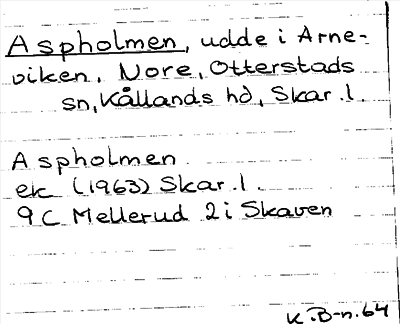 Aspholmen, udde i Arne-
viken, Nore, Otterstads
sn, Kållands hd, Skar. l.
Aspholmen
ek (1963) Skar. l.
9 C Mellerud 2 i Skaven
K. B-n. 64